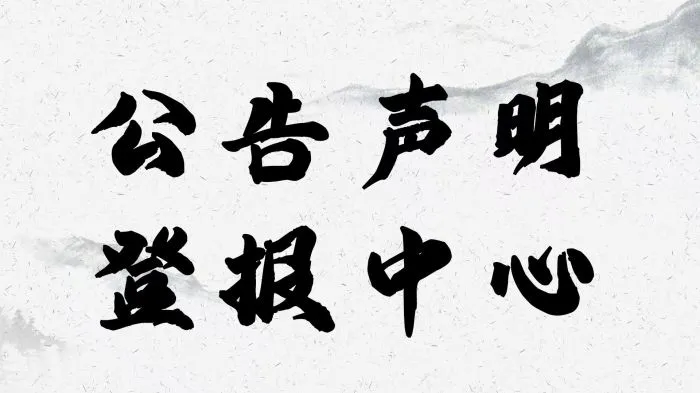 公告声明
登报中心